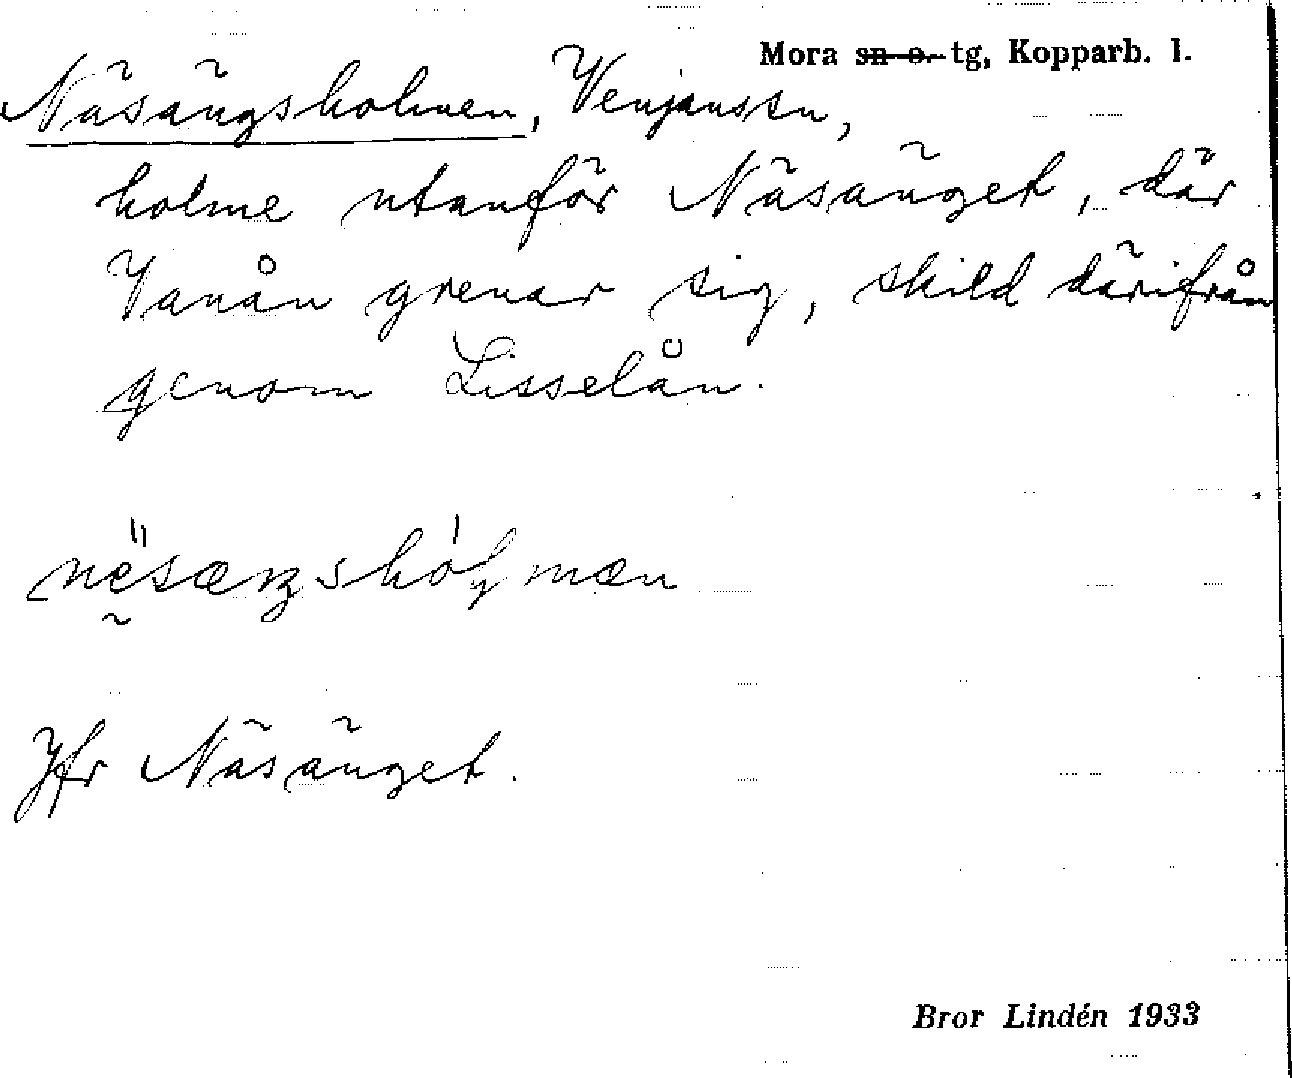 Mora ~~sn o.~~ tg, Kopparb. l.
Näsängsholmen, Venjanssn,
holme utanför Näsänget, där
Vanån grenar sig, skild därifrån
genom Lisselån.
Jfr Näsänget.
Bror Lindén 1933